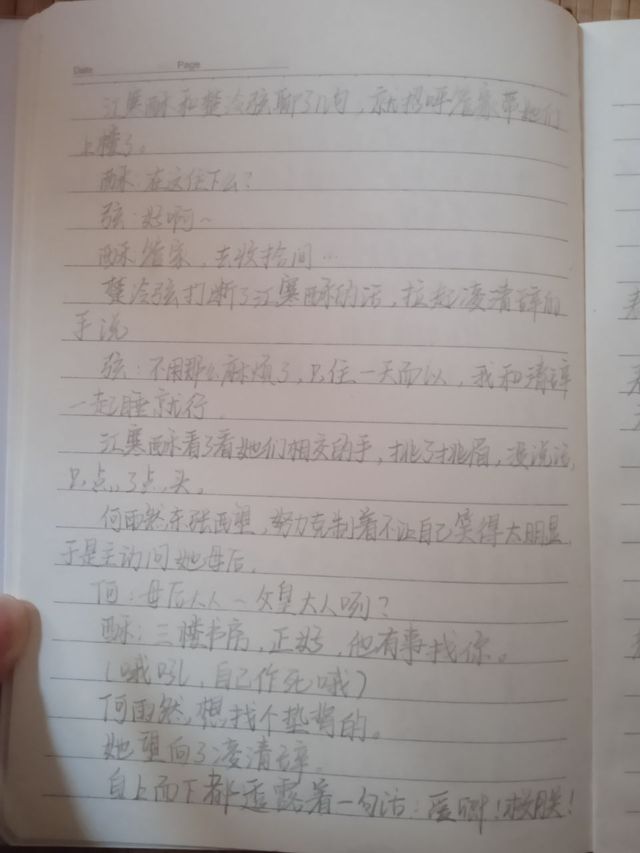 Date Page
江寒酥和楚冷弦聊了几句，就招呼管家带她们
上楼了。
酥：在这住下么？
弦：好啊～
酥：管家，去收拾间…
楚冷弦打断了江寒酥的话，拉起凌清辞的
手说
弦：不用那么麻烦了，只住一天而以，我和清辞
一起睡就行。
江寒酥看了看她们相交的手，挑了挑眉，没说话，
只点了点头。
何雨然东张西望，努力克制着不让自己笑得太明显
于是主动问她母后。
何：母后大人～父皇大人咧？
酥：三楼书房，正好，他有事找你。
（哦吼，自己作死哦）
何雨然，想找个垫背的。
她望向了凌清辞。
自上而下都透露着一句话：救我！